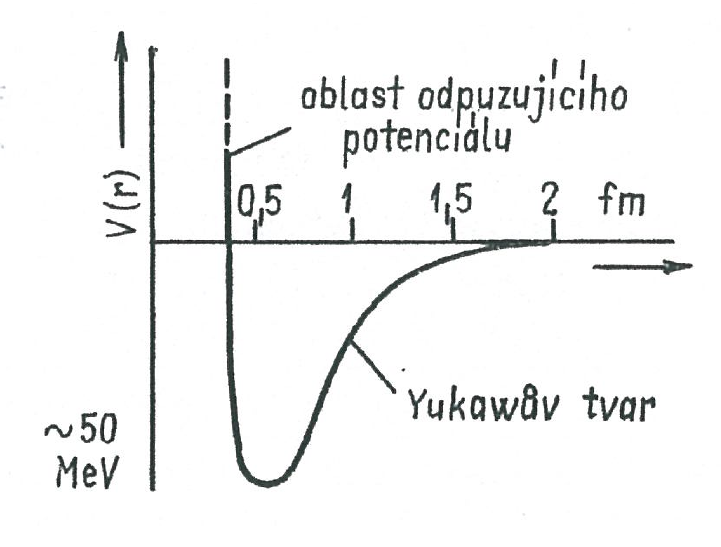 oblast odpuzujícího
potenciálu
V(r)
0,5 1 1,5 2 fm
Yukawův tvar
~50
MeV